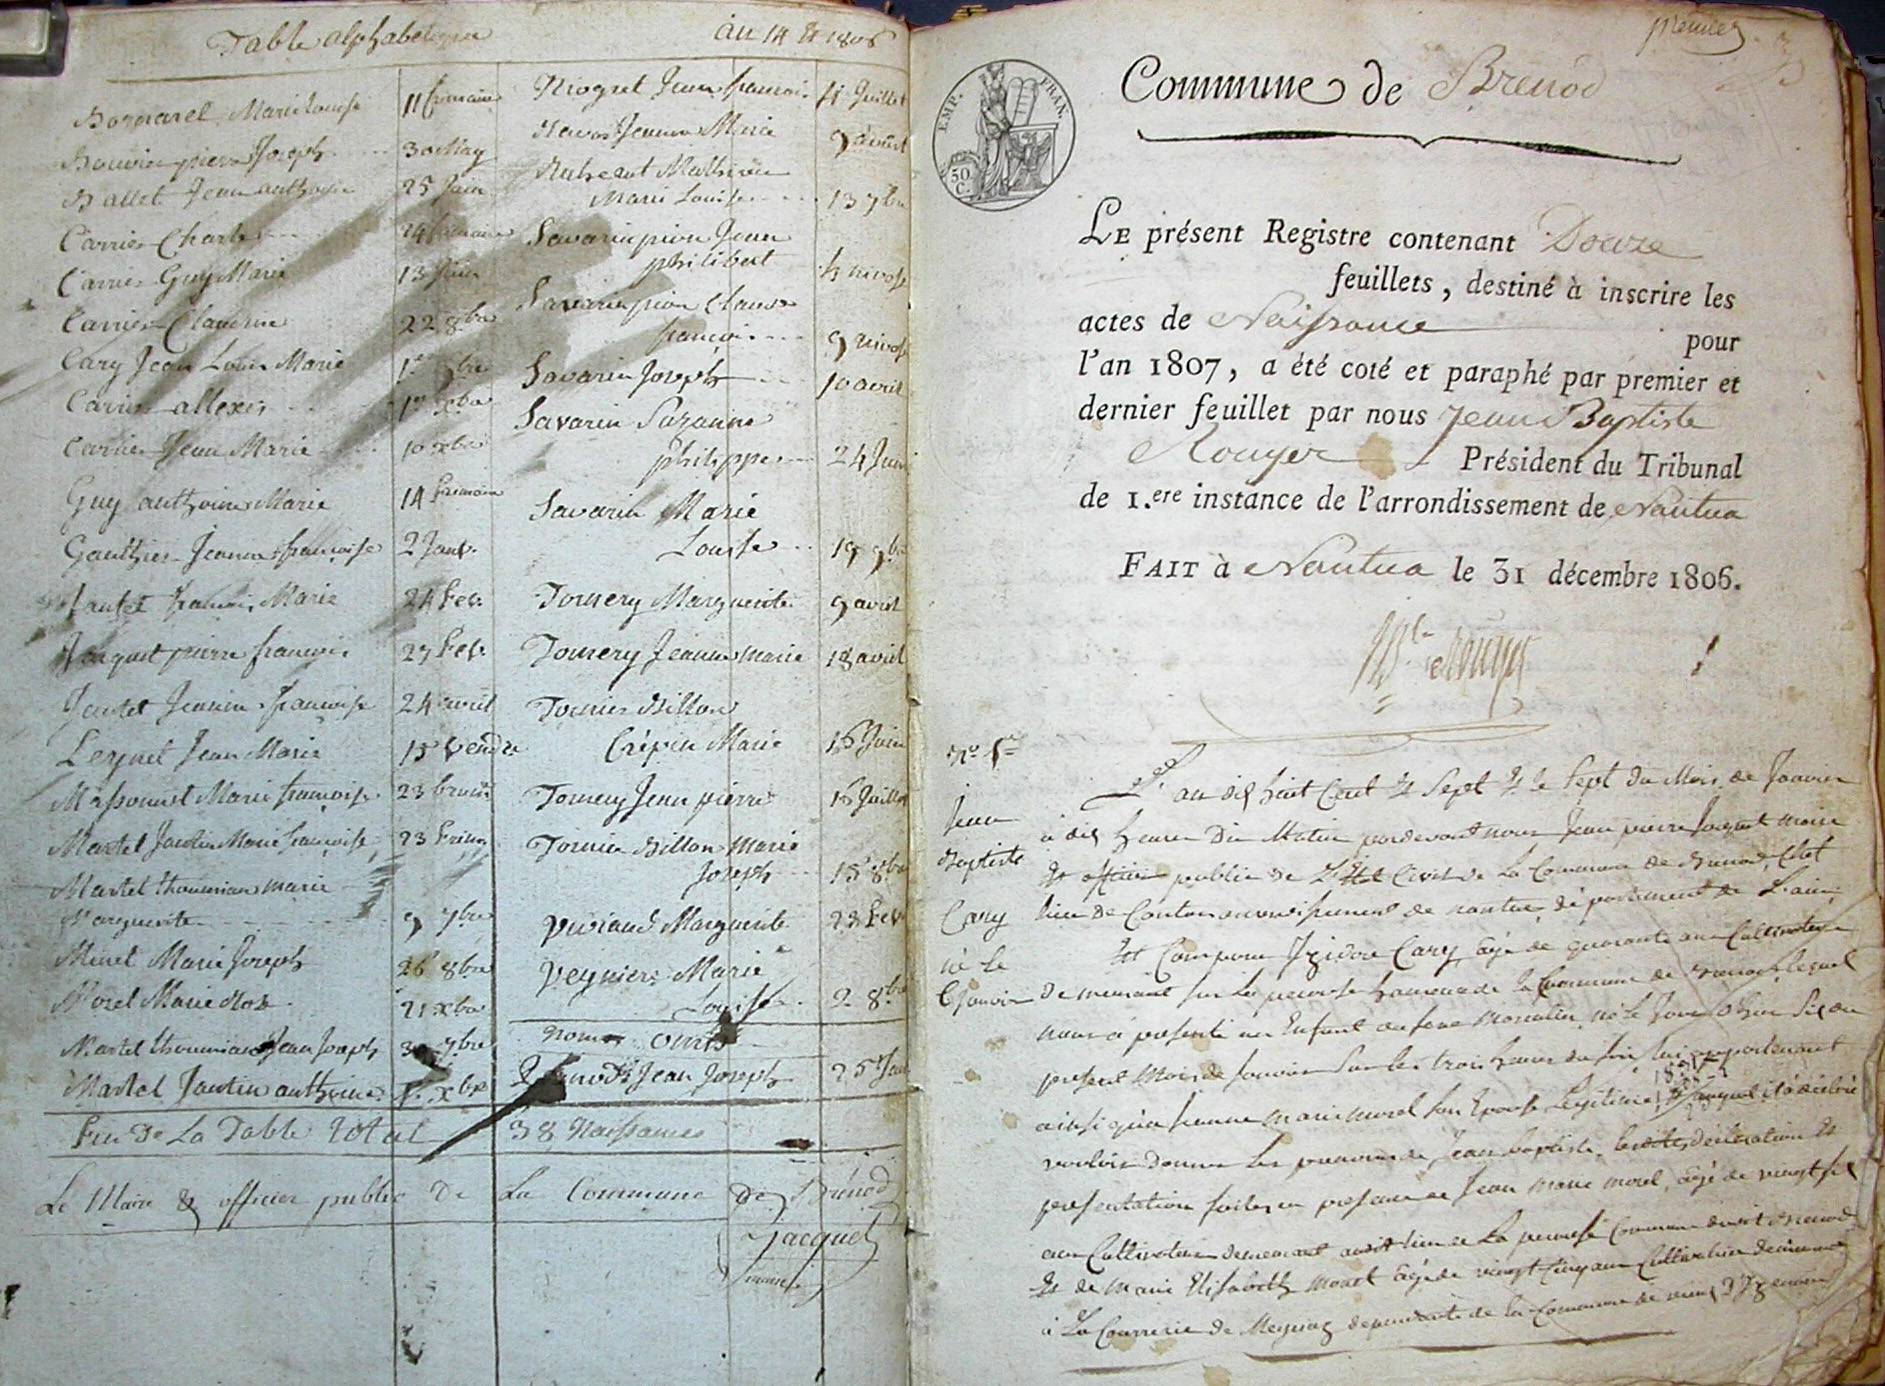 Table alphabetique
an 14 et 1806
Bornarel Marie Louise 11 frimaire
Bouvier pierre Joseph 30 May
Ballet Jean anthoine 25 Juin
Carrier Charle 24 frimaire
Carrier Guy Marie 13 Juin
Carrier Claudine 22 8bre
Cary Jean Louis Marie 1er 9bre
Carrier allexis 1er Xbre
Carrier Jean Marie 10 xbre
Guy anthoine Marie 14 frimaire
Gauthier Jeanne françoise 2 Janv.
Jantet françois Marie 24 Fev.
Jacquet pierre françois 27 Fev.
Jantet françoise 24 avril
Leynet Jean Marie 15 Vendre
Massonnet Marie françoise 23 brum
Martel Jantin Marie françoise 23 Frim
Martel thoumian marie
Marguerite 9 7bre
Minet Marie Joseph 26 8bre
Morel Marie Roz 21 xbre
Martel thoumian Jean Joseph 30 7bre
Martel Jantin anthoine 1er xbre
Niogret Jean françois 4 Juillet
Jeanne Marie 9 aout
Marie Louise 13 7bre
Savarin pion Jean
philibert 4 nivose
Savarin pion Claude
françois 9 nivose
Savarin Joseph 10 avril
Savarin Suzanne
philippe 24 Juin
Savarin Marie
Louise 19 9bre
Tornery Marguerite 9 avril
Tornery Jeanne marie 18 avril
Tornier Billon
Crépin Marie 16 Juin
Tornery Jean pierre 16 Juillet
Tornier Billon Marie
Joseph 15 8bre
Puviand Marguerite 23 Fev
Veyniere Marie
Louise 2 8bre
Noms omis
Jean Joseph 25 Jan
Fin De La Table total 38 Naissances
Le Maire & officier public De La Commune De Brénod
Jacquet
maire
premier
Commune de Brenod
EMP. FRAN.
50 C.
LE présent Registre contenant Douze
feuillets, destiné à inscrire les
actes de Naissance pour
l'an 1807, a été coté et paraphé par premier et
dernier feuillet par nous Jean Baptiste
Rouyer Président du Tribunal
de 1.ere instance de l'arrondissement de Nantua
FAIT à Nantua le 31 décembre 1806.
Bte Rouyer
No 1er
Jean
Baptiste
Cary
né le
6 Janvier
L'an dix huit Cent et Sept et le Sept du Mois de Janvier
à dix heures Du Matin pardevant nous Jean pierre Jacquet maire
et officier public de L'Etat Civil de La Commune de Brenod, Chef
lieu de Canton arrondissement de nantua, département de L'ain,
Est Comparu Izidore Cary agé de quarante ans Cultivateur
Demeurant sur La perouse hameau de la Commune de Brenod lequel
nous a presenté un Enfant du sexe masculin né le Jour d'hier Six du
present Mois de Janvier Sur les trois heures du soir lui appartenant
ainsi qu'a Jeanne marie morel son Epouse Legitime, et auquel il a déclaré
vouloir donner les prenoms de Jean Baptiste. lesdites déclaration et
presentation faites en presence de Jean marie morel, agé de vingt six
ans Cultivateur demeurant audit lieu de La perouse Commune dudit Brenod
et de Marie Elisabeth Morel agée de vingt cinq ans Cultivatrice demeurant
à La Courrerie de Meyriaz dependante de la Commune de vieux D'Izenave